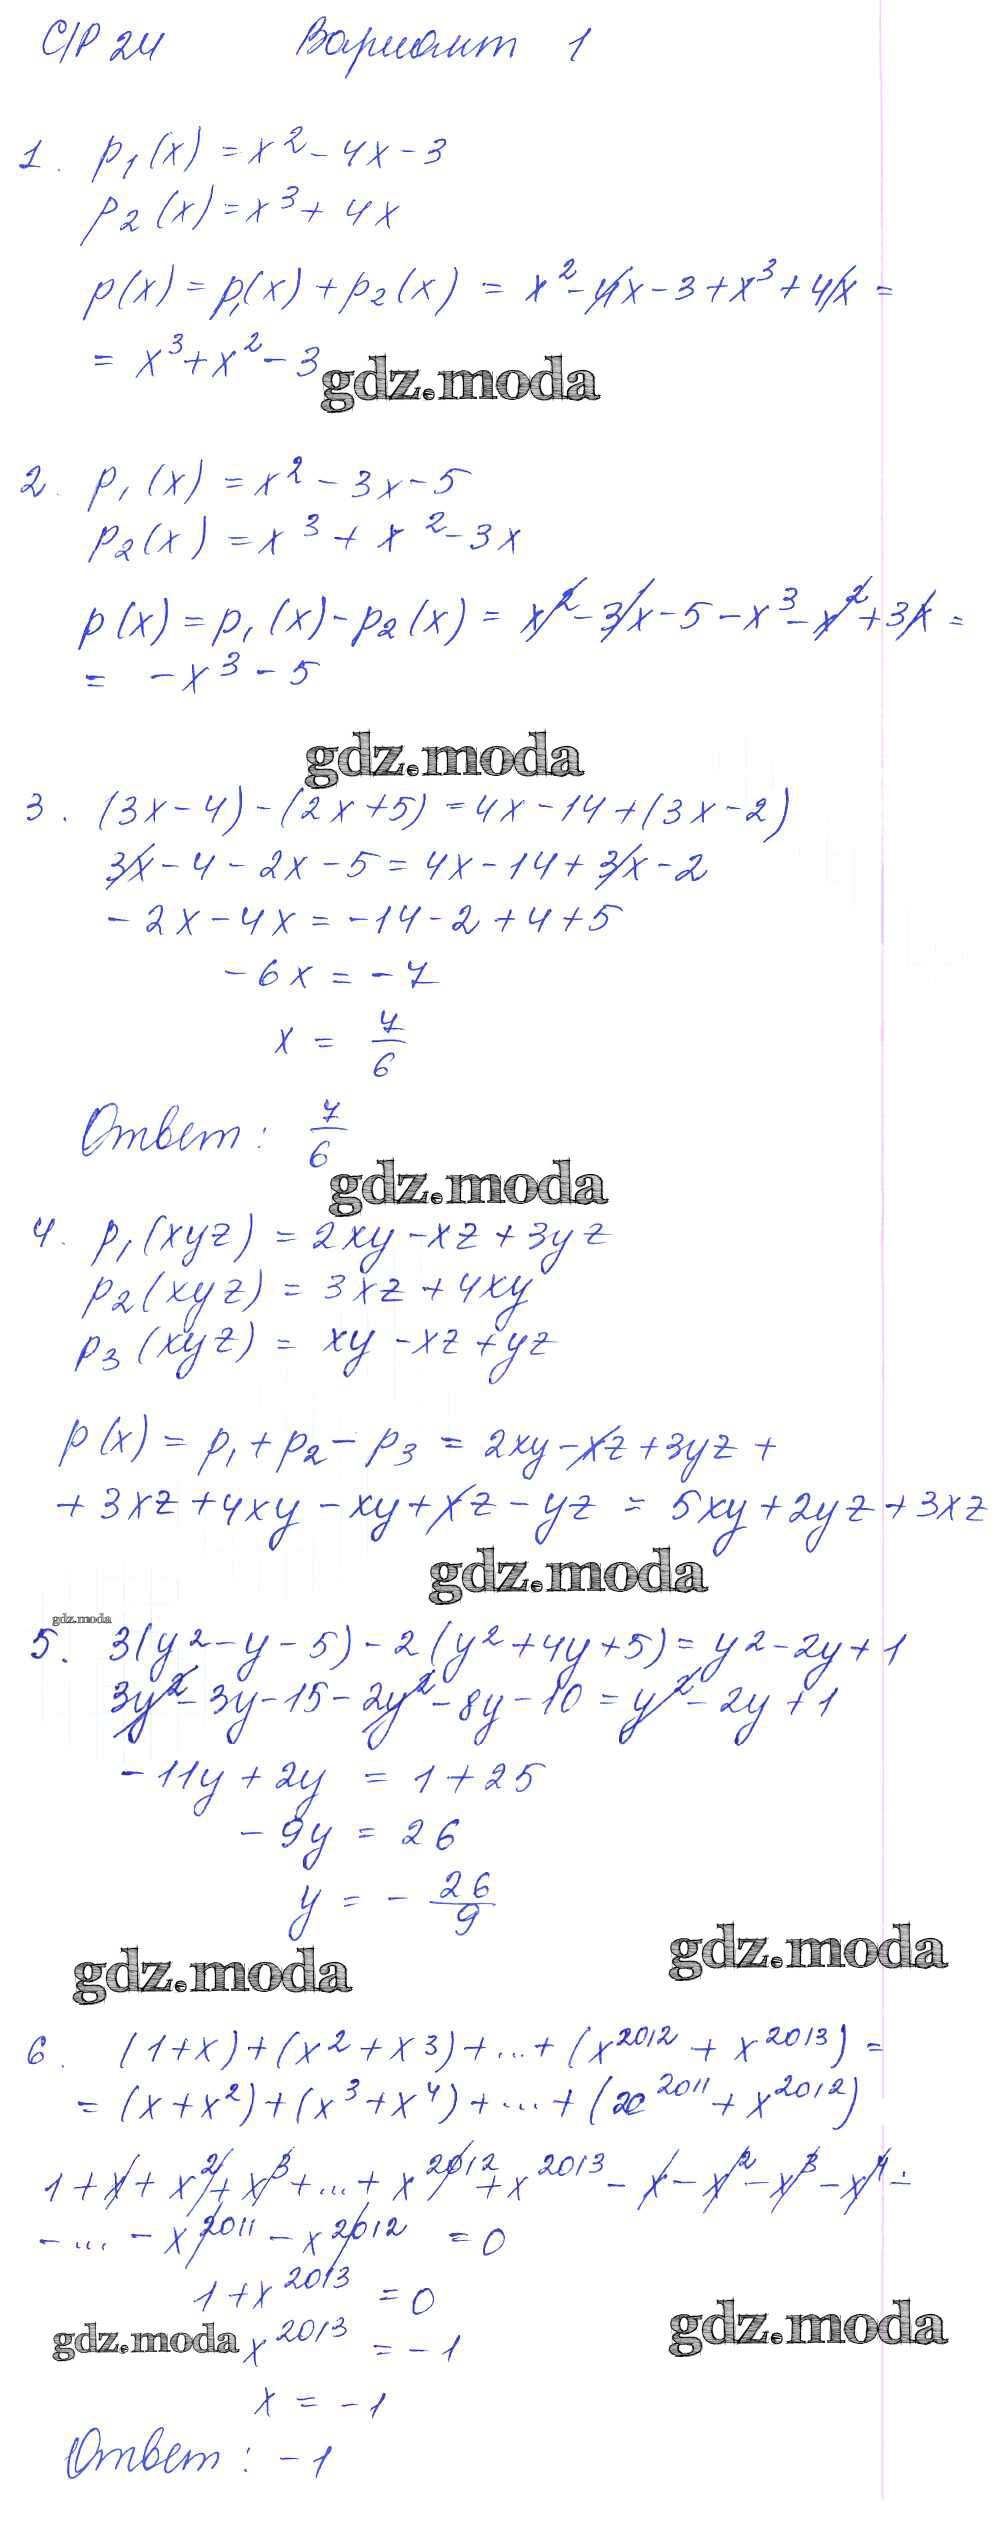 С/Р 24 Вариант 1
1. p₁(x) = x² - 4x - 3
p₂(x) = x³ + 4x
p(x) = p₁(x) + p₂(x) = x² - 4x - 3 + x³ + 4x =
= x³ + x² - 3
gdz.moda
2. p₁(x) = x² - 3x - 5
p₂(x) = x³ + x² - 3x
p(x) = p₁(x) - p₂(x) = x² - 3x - 5 - x³ - x² + 3x =
= -x³ - 5
gdz.moda
3. (3x - 4) - (2x + 5) = 4x - 14 + (3x - 2)
3x - 4 - 2x - 5 = 4x - 14 + 3x - 2
-2x - 4x = -14 - 2 + 4 + 5
-6x = -7
x = 7/6
Ответ: 7/6
gdz.moda
4. p₁(xyz) = 2xy - xz + 3yz
p₂(xyz) = 3xz + 4xy
p₃(xyz) = xy - xz + yz
p(x) = p₁ + p₂ - p₃ = 2xy - xz + 3yz +
+ 3xz + 4xy - xy + xz - yz = 5xy + 2yz + 3xz
gdz.moda
gdz.moda
5. 3(y² - y - 5) - 2(y² + 4y + 5) = y² - 2y + 1
3y² - 3y - 15 - 2y² - 8y - 10 = y² - 2y + 1
-11y + 2y = 1 + 25
-9y = 26
y = - 26/9
gdz.moda
gdz.moda
6. (1 + x) + (x² + x3) + ... + (x²⁰¹² + x²⁰¹³) =
= (x + x²) + (x³ + x⁴) + ... + (x²⁰¹¹ + x²⁰¹²)
1 + x + x² + x³ + ... + x²⁰¹² + x²⁰¹³ - x - x² - x³ - x⁴ -
- ... - x²⁰¹¹ - x²⁰¹² = 0
1 + x²⁰¹³ = 0
gdz.moda
x²⁰¹³ = -1
gdz.moda
x = -1
Ответ: -1